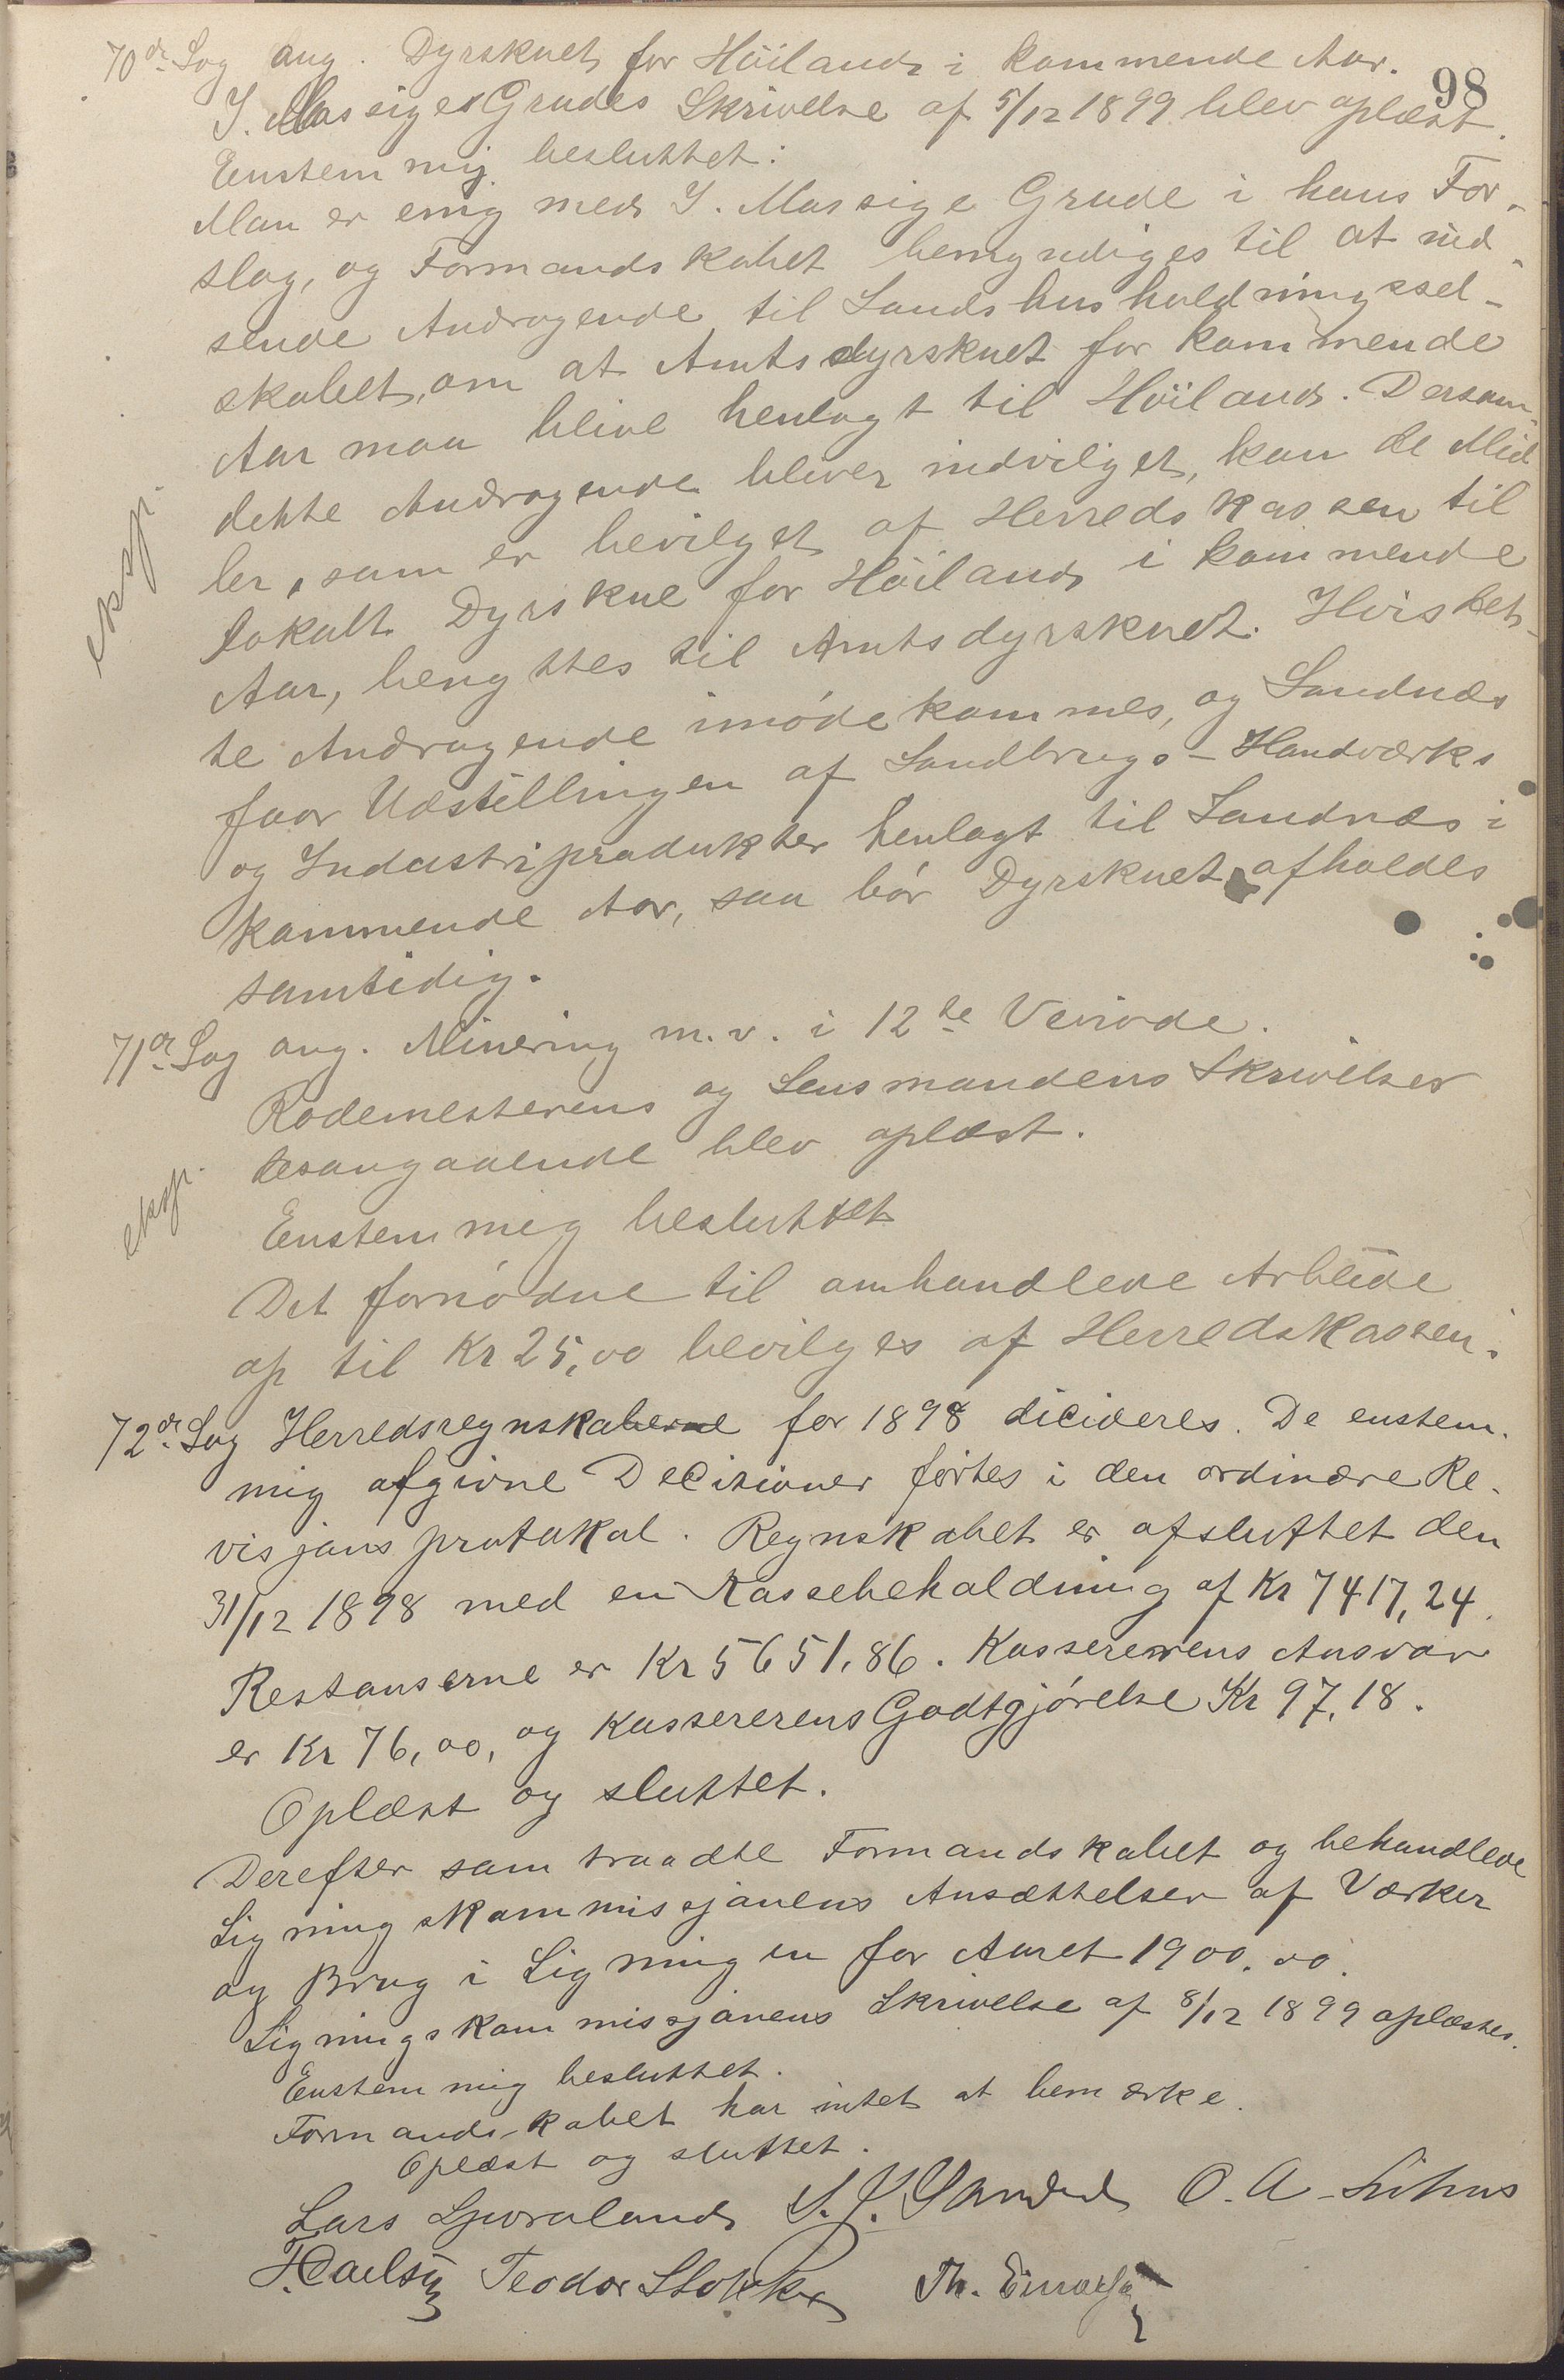 98
70de Sag ang. Dyrskuet for Höiland i kommende Aar.
I. Massige Grudes Skrivelse af 5/12 1899 blev oplæst.
Enstemmig besluttet:
Man er enig med I. Massige Grude i hans For-
slag, og Formandskabet bemyndiges til at ind-
sende Andragende til Landshusholdningssel-
skabet, om at Amtsdyrskuet for kommende
Aar maa blive henlagt til Höiland. Dersom
dette Andragende bliver indvilget, kan de Mid-
ler, som er bevilget af Herredskassen til
lokalt Dyrskue for Höiland i kommende
Aar, benyttes til Amtsdyrskuet. Hvis det-
te Andragende imødekommes, og Sandnæs
faar Udstillingen af Landbrugs- Handværks
og Industriprodukter henlagt til Sandnæs i
kommende Aar, saa bör Dyrskuet afholdes
samtidig.
eksp.
71de Sag ang. Minering m.v. i 12te Veirode.
Rodemesterens og Lensmandens Skrivelser
desangaaende blev oplæst.
eksp.
Enstemmig besluttet
Det fornødne til omhandlede Arbeide
op til Kr 25,00 bevilges af Herredskassen.
72de Sag Herredsregnskaberne for 1898 dicideres. De enstem-
mig afgivne Decisioner førtes i den ordinære Re-
visjons protokol. Regnskabet er afsluttet den
31/12 1898 med en Kassebeholdning af Kr 7417,24.
Restanserne er Kr 5651,86. Kassererens Ansvar
er Kr 76,00, og Kassererens Godtgjørelse Kr 97,18.
Oplæst og sluttet.
Derefter sam traadte Formandskabet og behandlede
Ligningskommissjonens Ansættelser af Værker
og Brug i Ligningen for Aaret 1900.00.
Ligningskommissjonens Skrivelse af 8/12 1899 oplæstes.
Enstemmig besluttet.
Formandskabet har intet at bemærke.
Oplæst og sluttet.
Lars Ljuraland O. A.
Teodor Th.